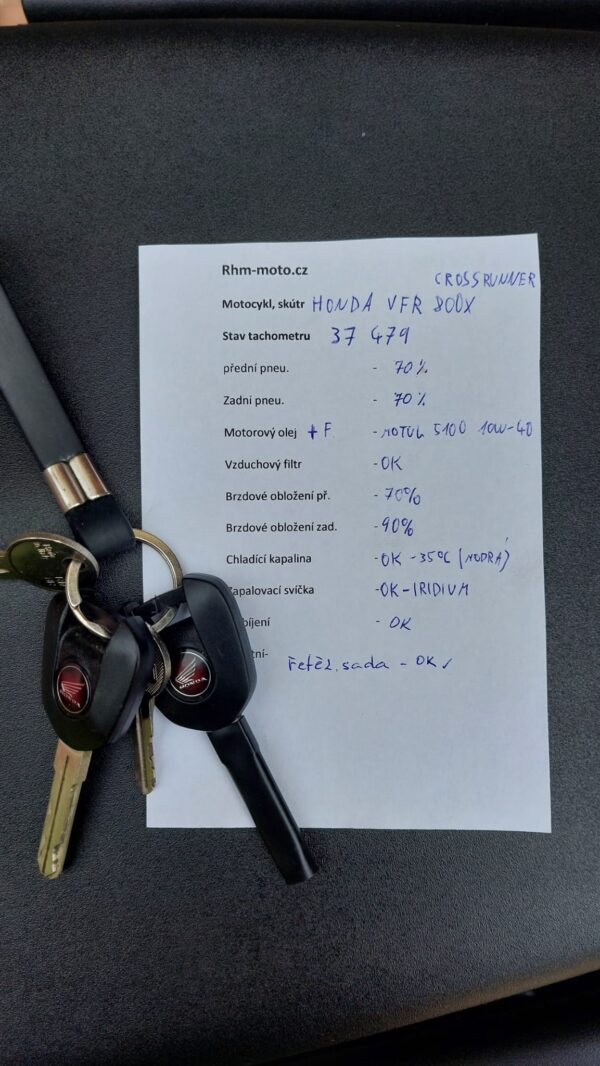 Rhm-moto.cz
CROSSRUNNER
Motocykl, skútr HONDA VFR 800X
Stav tachometru 37 479
přední pneu. - 70%
Zadní pneu. - 70%
Motorový olej + F. - MOTUL 5100 10W-40
Vzduchový filtr - OK
Brzdové obložení př. - 70%
Brzdové obložení zad. - 90%
Chladící kapalina - OK -35°C (MODRÁ)
Zapalovací svíčka - OK - IRIDIUM
bíjení - OK
tní-
řetěz. sada - OK ✓
HONDA
HONDA